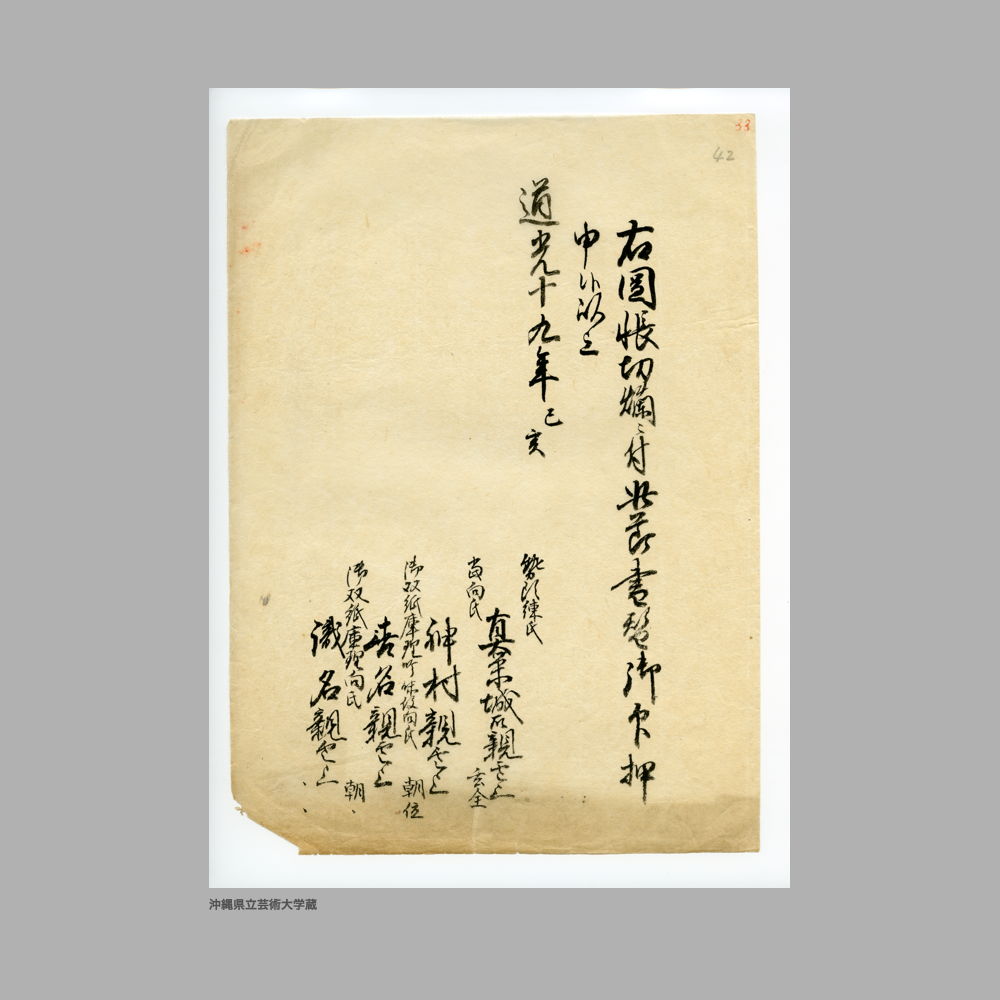 33
42
右図帳切爛ニ付此節書替御印押
申候以上
道光十九年己亥
勢頭練氏
真栄城石親雲上 玄全
当向氏
神村親雲上
御双紙庫理吟味役向氏 朝位
喜名親雲上
御双紙庫理向氏 朝、
識名親雲上、、
沖縄県立芸術大学蔵